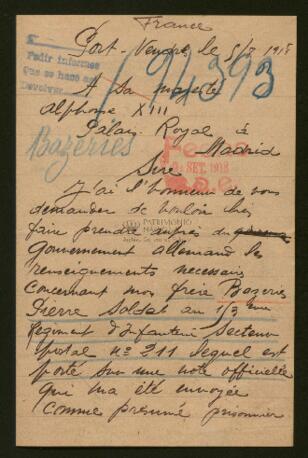 France
Port-Vendres, le 5/7 1918
Pedir informes
que se hace así
Devolver
94393
A Sa majesté
Alphonse XIII
Palais Royal à
Madrid
Bazeries
SET. 1918
Sire
J'ai l'honneur de vous
demander de vouloir bien
faire prendre auprès du
PATRIMONIO
gouvernement allemand les
renseignements necessaires
concernant mon frère Bazeries
Pierre Soldat au
Régiment d'Infanterie Secteur
postal n° 211 lequel est
porté sur une note officielle
qui m'a été envoyée
comme présumé prisonnier